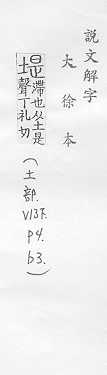 說文解字
大徐本
堤 滯也从土是
聲丁礼切
(土部.
V137.
p4.
b3.)